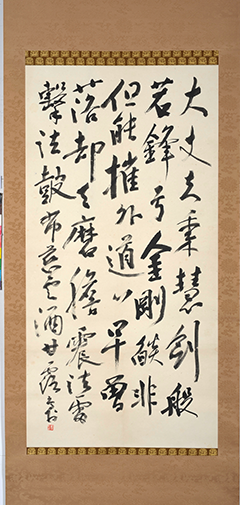 大丈夫秉慧劍般
若鋒兮金剛燄非
但能摧外道心早曾
落却天魔膽震法雷
擊法鼓布慈雲洒甘露